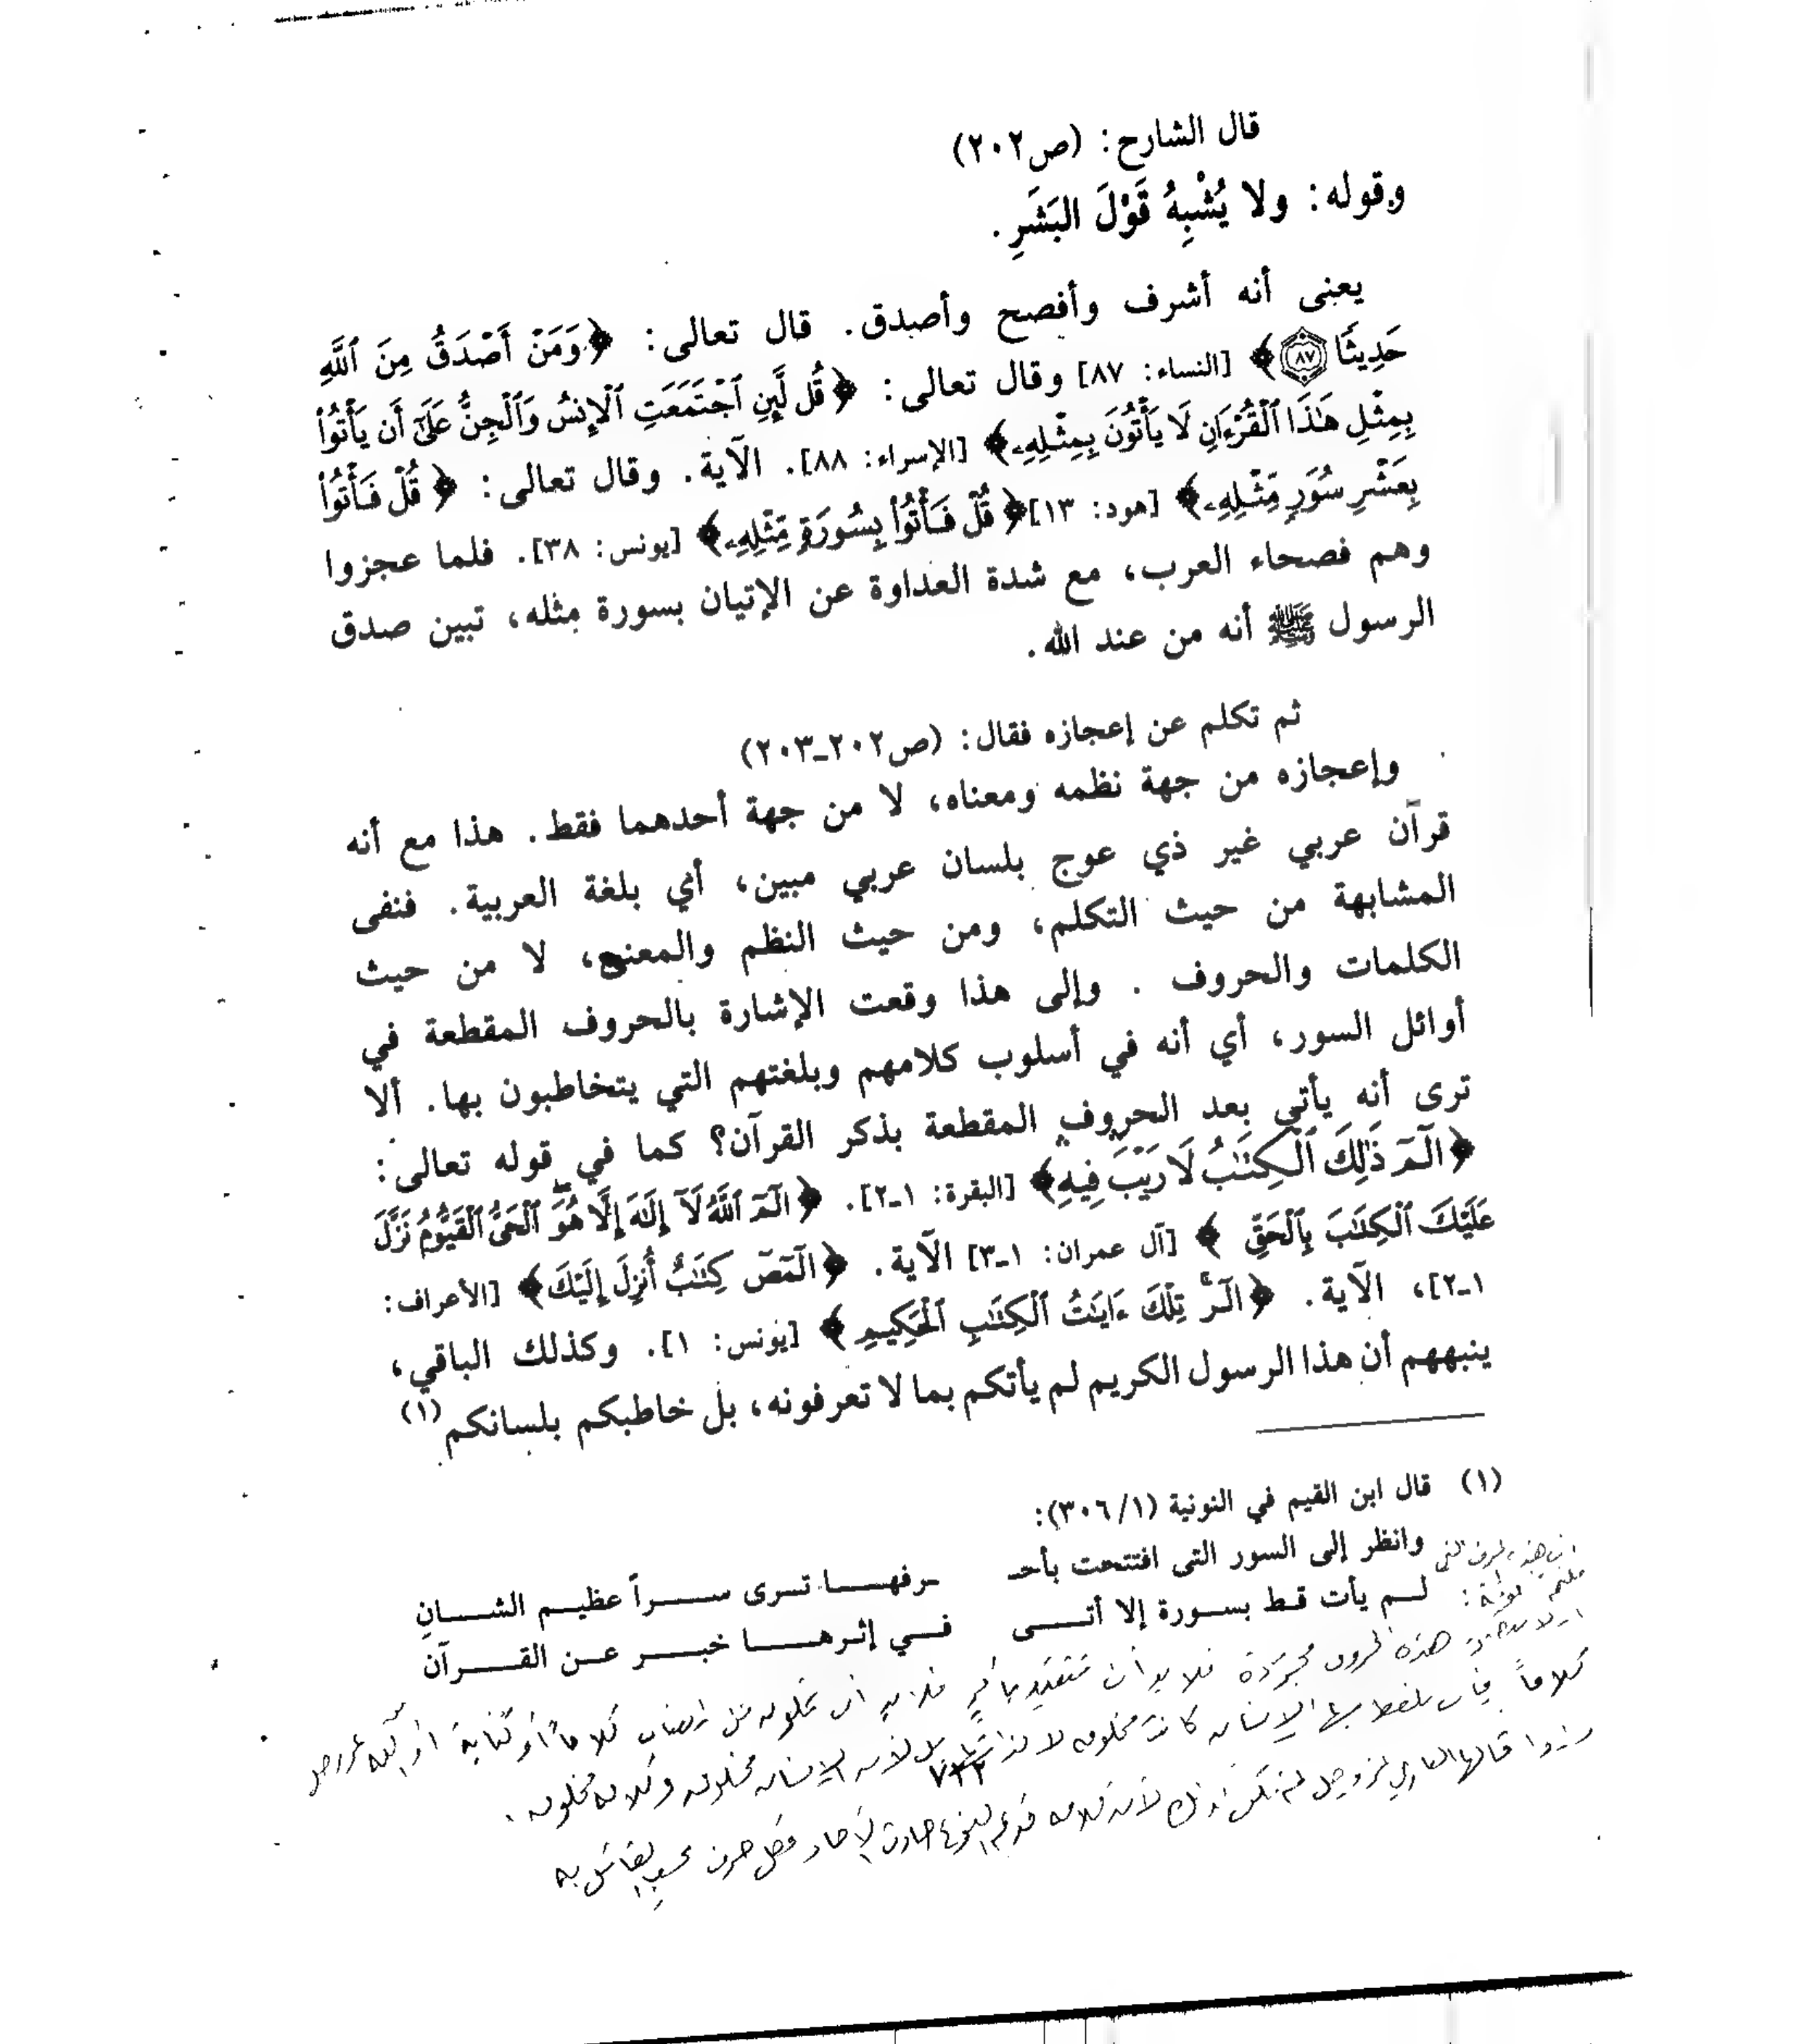 قال الشارح: (ص٢٠٢)
وقوله: ولا يُشْبِهُ قَوْلَ البَشَرِ.
يعنى أنه أشرف وأفصح وأصدق. قال تعالى: ﴿وَمَنْ أَصْدَقُ مِنَ ٱللَّهِ
حَدِيثًا ٨٧﴾ [النساء: ٨٧] وقال تعالى: ﴿قُل لَّئِنِ ٱجْتَمَعَتِ ٱلْإِنسُ وَٱلْجِنُّ عَلَىٰٓ أَن يَأْتُوا۟
بِمِثْلِ هَٰذَا ٱلْقُرْءَانِ لَا يَأْتُونَ بِمِثْلِهِۦ﴾ [الإسراء: ٨٨]. الآية. وقال تعالى: ﴿قُلْ فَأْتُوا۟
بِعَشْرِ سُوَرٍ مِّثْلِهِۦ﴾ [هود: ١٣] ﴿قُلْ فَأْتُوا۟ بِسُورَةٍ مِّثْلِهِۦ﴾ [يونس: ٣٨]. فلما عجزوا
وهم فصحاء العرب، مع شدة العداوة عن الإتيان بسورة مثله، تبين صدق
الرسول ﷺ أنه من عند الله.
ثم تكلم عن إعجازه فقال: (ص٢٠٢ـ٢٠٣)
وإعجازه من جهة نظمه ومعناه، لا من جهة أحدهما فقط. هذا مع أنه
قرآن عربي غير ذي عوج بلسان عربي مبين، أي بلغة العربية. فنفى
المشابهة من حيث التكلم، ومن حيث النظم والمعنى، لا من حيث
الكلمات والحروف. وإلى هذا وقعت الإشارة بالحروف المقطعة في
أوائل السور، أي أنه في أسلوب كلامهم وبلغتهم التي يتخاطبون بها. ألا
ترى أنه يأتي بعد الحروف المقطعة بذكر القرآن؟ كما في قوله تعالى:
﴿الٓمٓ ذَٰلِكَ ٱلْكِتَٰبُ لَا رَيْبَ فِيهِ﴾ [البقرة: ١ـ٢]. ﴿الٓمٓ ٱللَّهُ لَآ إِلَٰهَ إِلَّا هُوَ ٱلْحَىُّ ٱلْقَيُّومُ نَزَّلَ
عَلَيْكَ ٱلْكِتَٰبَ بِٱلْحَقِّ﴾ [آل عمران: ١ـ٣] الآية. ﴿الٓمٓصٓ كِتَٰبٌ أُنزِلَ إِلَيْكَ﴾ [الأعراف:
١ـ٢]، الآية. ﴿الٓرۚ تِلْكَ ءَايَٰتُ ٱلْكِتَٰبِ ٱلْحَكِيمِ﴾ [يونس: ١]. وكذلك الباقي،
ينبههم أن هذا الرسول الكريم لم يأتكم بما لا تعرفونه، بل خاطبكم بلسانكم (١)
(١) قال ابن القيم في النونية (٣٠٦/١):
وانظر إلى السور التى افتتحت بأحـ ـرفهـا تـرى سـراً عظيـم الشـانِ
لـم يأت قـط بسـورة إلا أتـى فـي إثـرهـا خبـر عـن القـرآن
هذه الحروف مجردة فلا بد أن تتقيد فلا بد ان تكون من كلاماً أو كتابة
كلاماً بها الإنسان كانت مخلوقه لا لأن الإنسان مخلوق وكلامه مخلوق.
٧٣٢